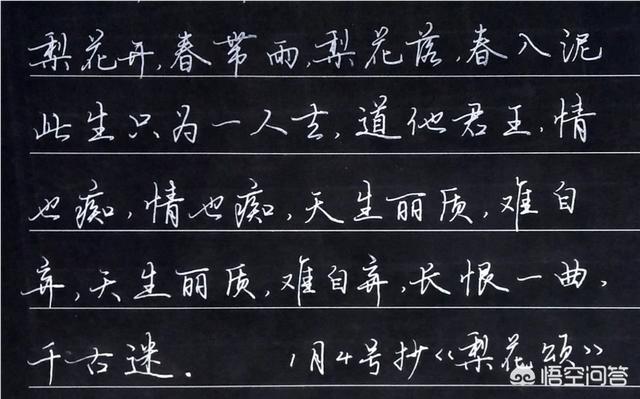 梨花开,春带雨,梨花落,春入泥
此生只为一人去,道他君王,情
也痴,情也痴,天生丽质,难自
弃,天生丽质,难自弃,长恨一曲,
千古迷. 1月4号抄《梨花颂》
悟空问答